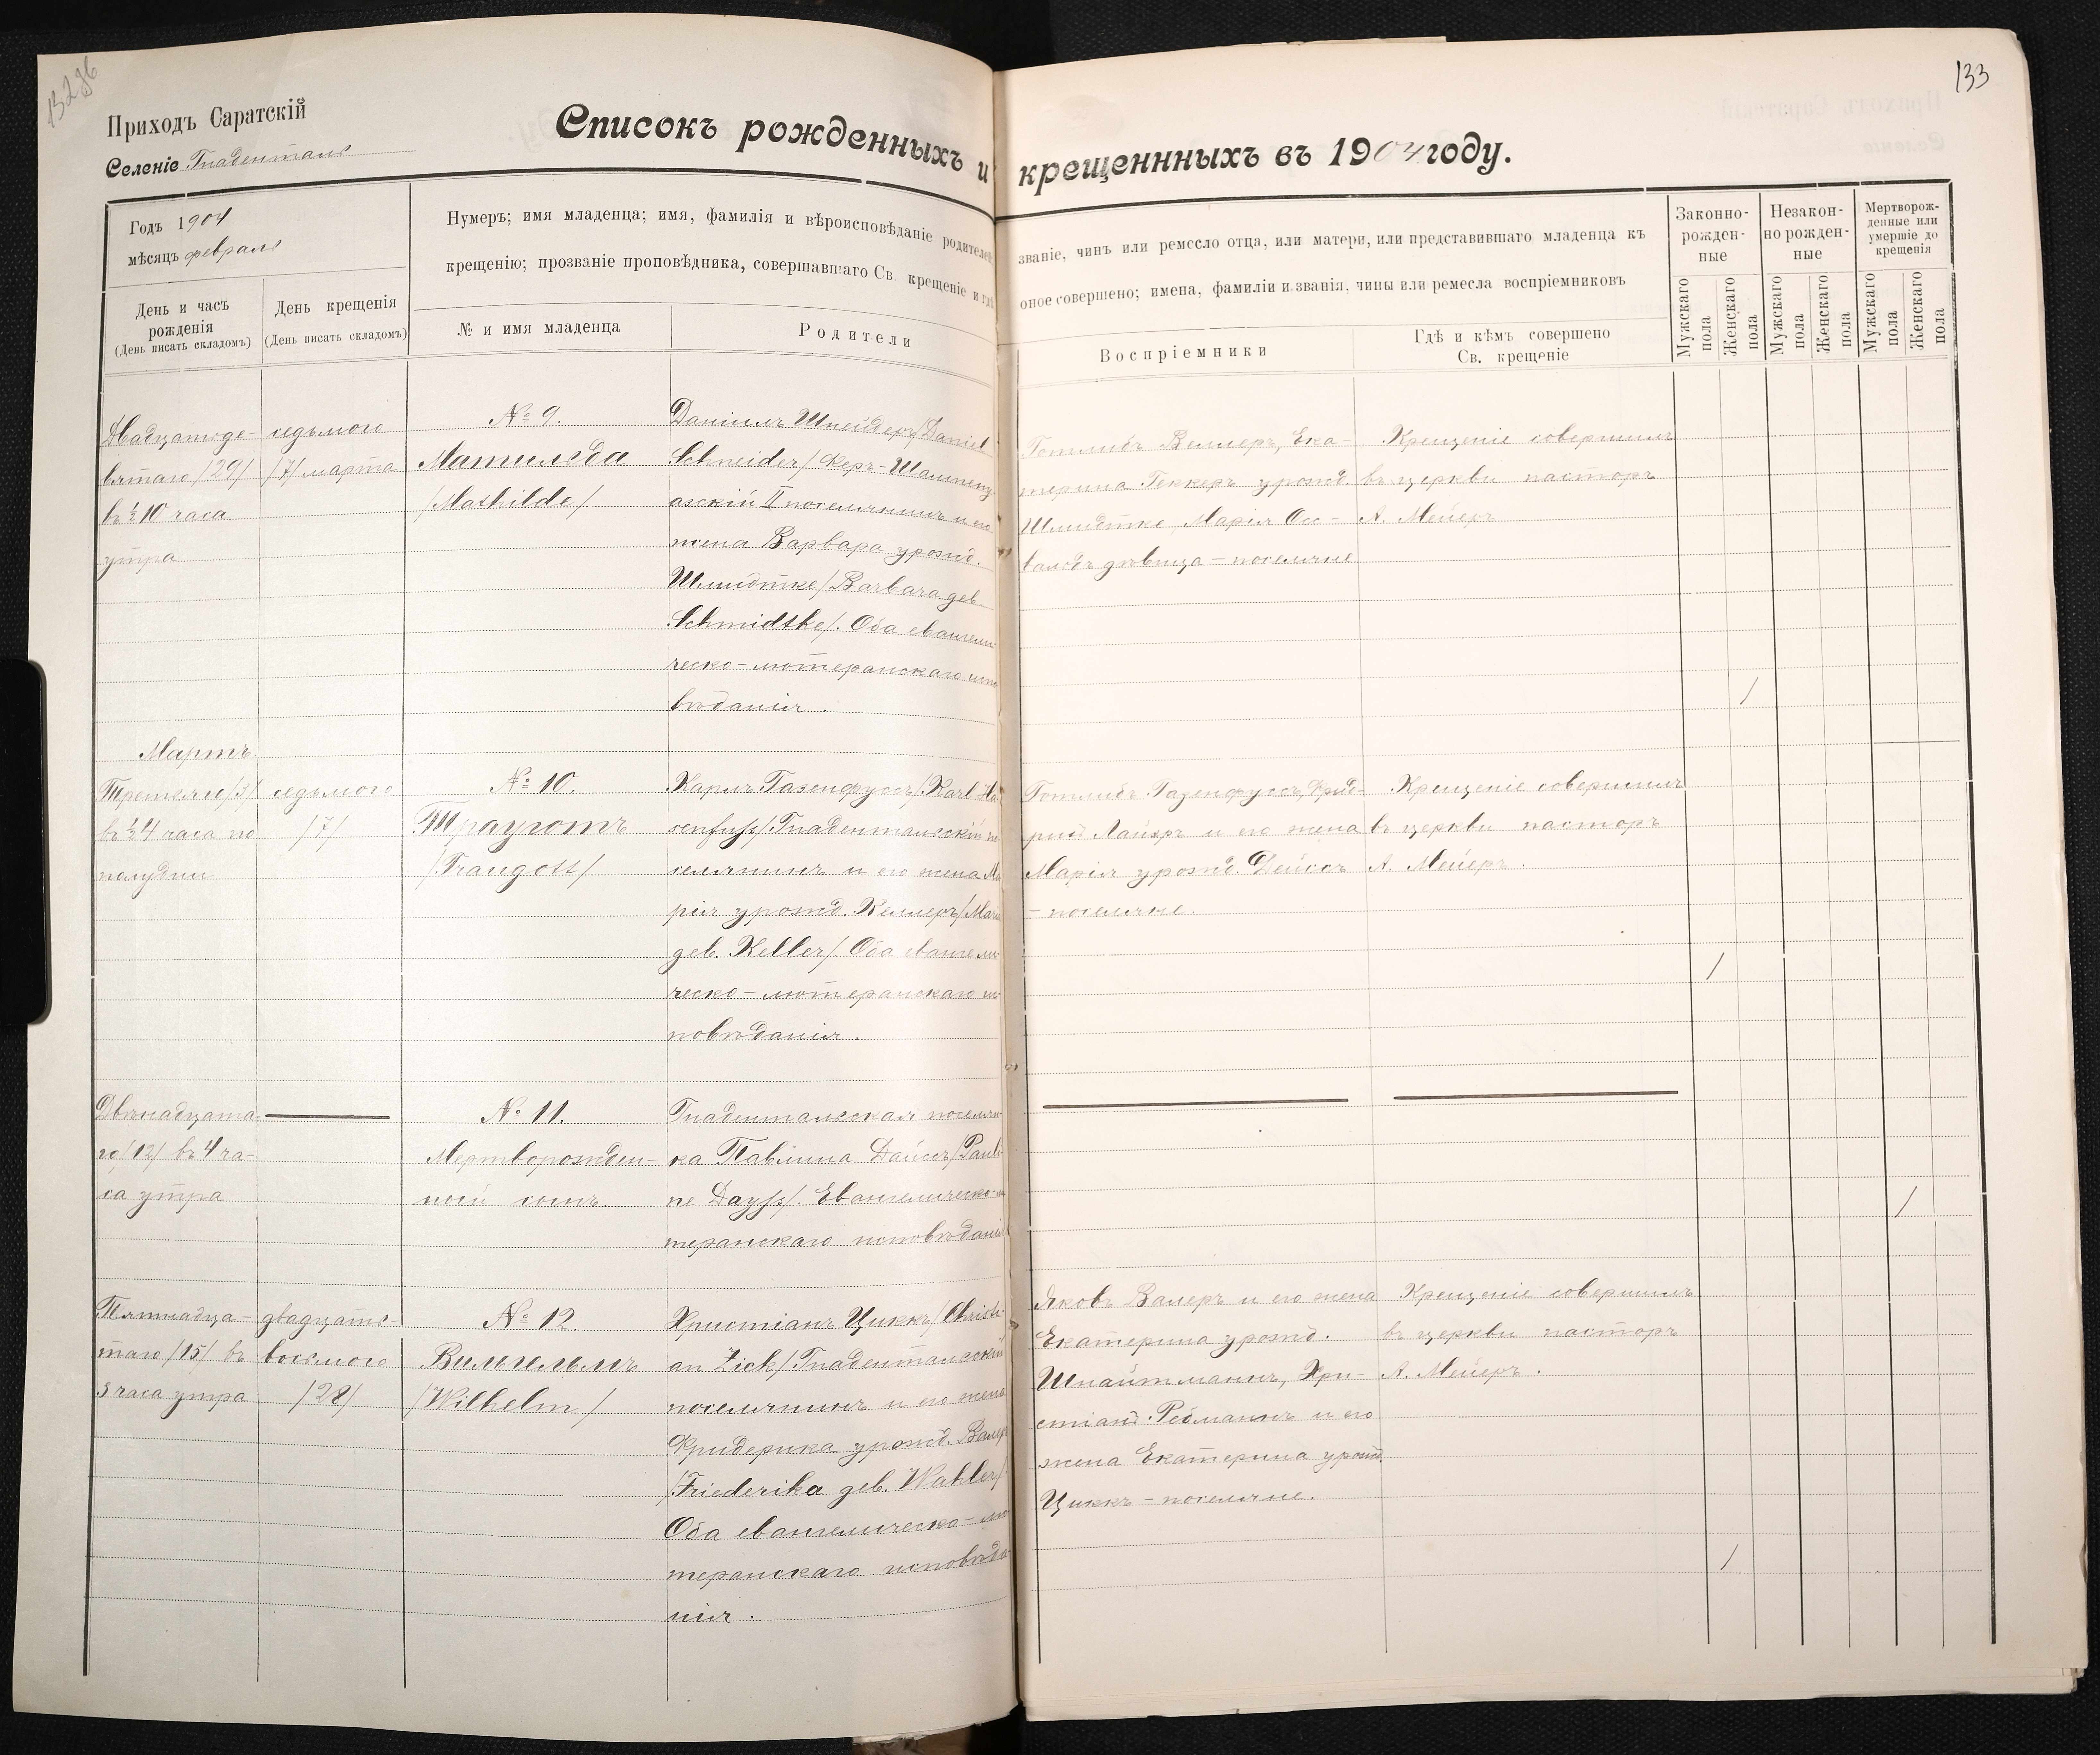 132 об
133
Приходъ Саратскій
Селеніе Гнаденталь
Списокъ рожденныхъ и крещеннныхъ въ 1904 году.
Годъ 1904
мѣсяцъ февраль
День и часъ
рожденія
(День писать складомъ)
День крещенія
(День писать складомъ)
Нумеръ; имя младенца; имя, фамилія и вѣроисповѣданіе родителей
крещенію; прозваніе проповѣдника, совершавшаго Св. крещеніе и гдѣ
№ и имя младенца
Родители
званіе, чинъ или ремесло отца, или матери, или представившаго младенца къ
оное совершено; имена, фамиліи и званія, чины или ремесла воспріемниковъ
Воспріемники
Гдѣ и кѣмъ совершено
Св. крещеніе
Законно-
рожден-
ные
Незакон-
но рожден-
ные
Мертворож-
денные или
умершіе до
крещенія
Мужскаго
пола
Женскаго
пола
Мужскаго
пола
Женскаго
пола
Мужскаго
пола
Женскаго
пола
Двадцатаго де-
вятаго /29/
въ ½10 часа
утра
седьмого
/7/ марта
№ 9.
Матильда
/Mathilde/
Даніилъ Шнейдеръ/Daniel
Schneider/ Феръ-Шампенуаз-
аскій II поселянинъ и его
жена Варвара урожд.
Шмидтке/Barbara geb.
Schmidtke/. Оба евангели-
ческо-лютеранскаго испо
вѣданія.
Готлибъ Веллеръ, Ека-
терина Геккеръ урожд.
Шмидтке Марія Ос-
вальдъ дѣвица - поселяне
Крещеніе совершилъ
въ церкви пасторъ
А. Мейеръ
/
Мартъ
Третьяго/3/
въ ½4 часа по
полудни
седьмого
/7/
№ 10.
Трауготъ
/Traugott/
Карлъ Газенфуссъ/Karl Ha
senfuss/Гнадентальскій по
селянинъ и его жена Ма
рія урожд. Келлеръ/Maria
geb. Keller/. Оба евангели
ческо-лютеранскаго ис
повѣданія.
Готлибъ Газенфуссъ, Фрид-
рихъ Лайеръ и его жена
Марія урожд. Дейссъ
- поселяне.
Крещеніе совершилъ
въ церкви пасторъ
А. Мейеръ.
/
Двѣнадцата-
го/12/ въ 4 ча-
са утра
№ 11.
Мертворожден-
ный сынъ.
Гнадентальская поселян
ка Павлина Дайссъ/Pauli
ne Dayss/. Евангелическо-лю
теранскаго исповѣданія
/
Пятнадца-
таго /15/ въ
3 часа утра
двадцать-
восьмого
/28/
№ 12.
Вильгельмъ
/Wilhelm/
Христіанъ Циккъ/Christi
an Zick/Гнадентальскій
поселянинъ и его жена
Фридерика урожд. Валеръ
/Friederika geb. Wahler/
Оба евангелическо-лю
теранскаго исповѣда
нія.
Яковъ Валеръ и его жена
Екатерина урожд.
Шпайтманнъ, Хри-
стіанъ Ребманнъ и его
жена Екатерина урожд.
Циккъ - поселяне.
Крещеніе совершилъ
въ церкви пасторъ
А. Мейеръ.
/